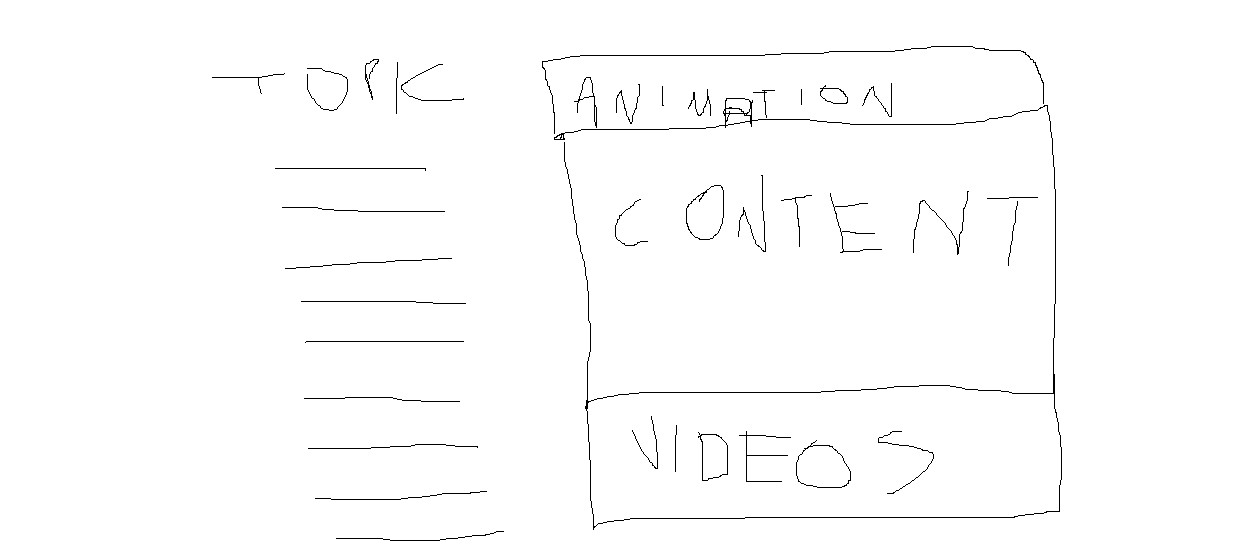 TOPIC
ANIMATION
CONTENT
VIDEOS